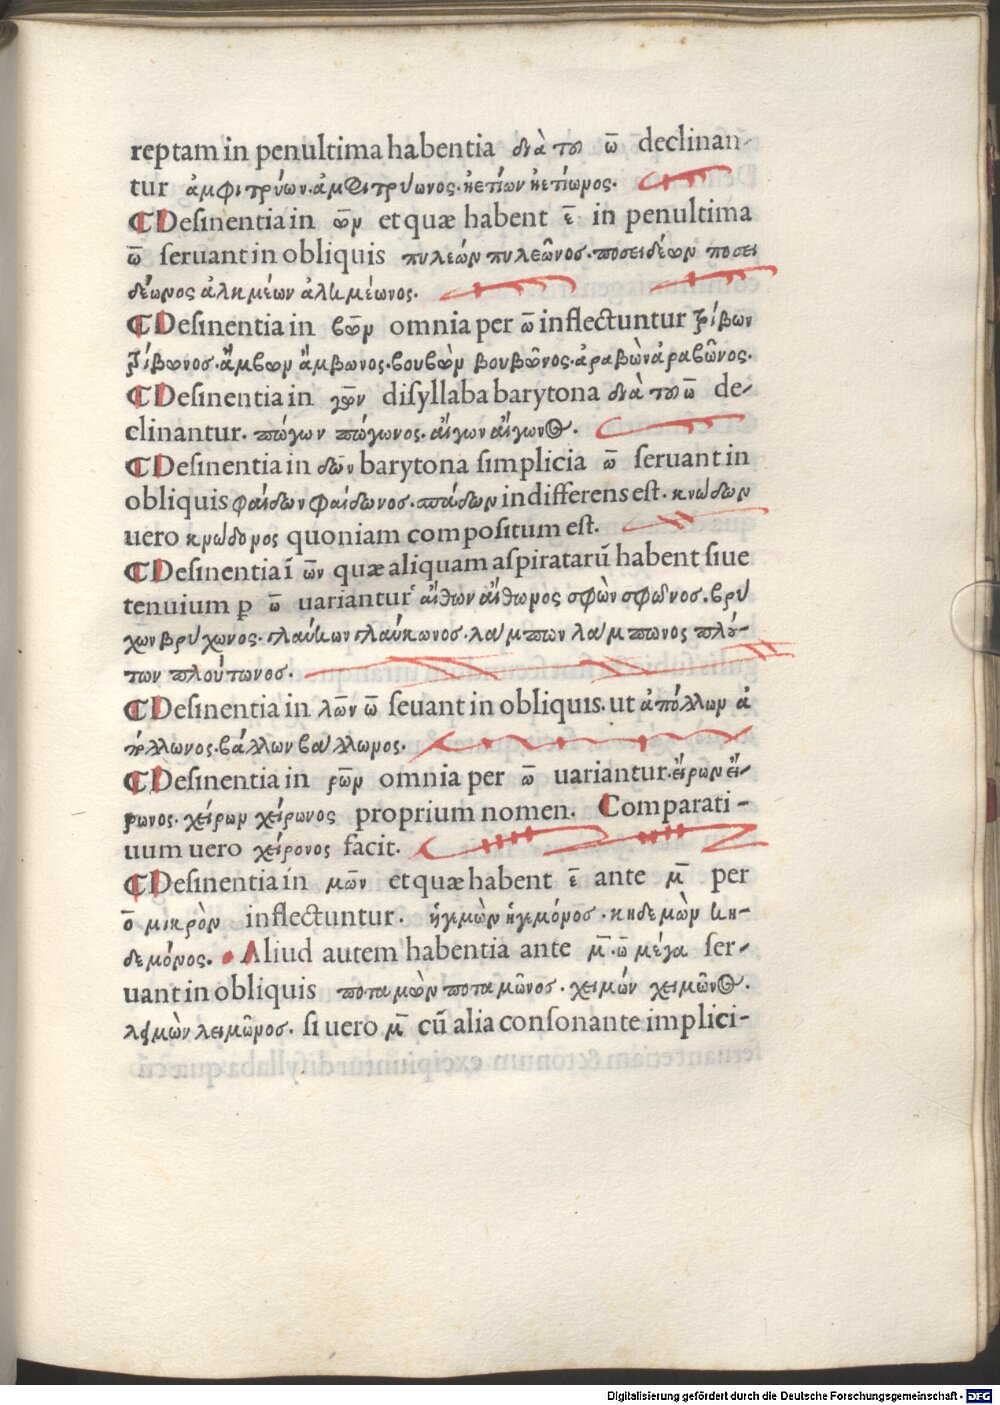 reptam in penultima habentia διὰ του ω̅ declinan-
tur ἀμφιτρύων.ἀμφιτρύωνος.κετίων κετίωνος.
¶Desinentia in ων et quæ habent ε̅ in penultima
ω̅ seruant in obliquis πυλεών πυλεῶνοσ.ποσειδέων ποσει
δέωνος ἀλκμέων ἀλκμέωνος.
¶Desinentia in βων omnia per ω̅ inflectuntur τρίβων
τρίβωνοσ.ἄμβων ἄμβωνος.βουβὼν βουβῶνος.ἀραβὼν ἀραβῶνος.
¶Desinentia in γων disyllaba barytona διὰ του ω̅ de-
clinantur. πώγων πώγωνος. αἴγων αἴγωνος.
¶Desinentia in δων barytona simplicia ω̅ seruant in
obliquis φαίδων φαίδωνοσ. indifferens est. κνώδων
uero κνώδονος quoniam compositum est.
¶Desinentia ī ων quæ aliquam aspiratarū habent siue
tenuium ꝑ ω̅ uariantur αἴθων αἴθωνος σφὼν σφῶνος.βρύ
χων βρύχωνος. γλαύκων γλαύκωνοσ. λάμπων λάμπωνος πλού-
των πλούτωνοσ.
¶Desinentia in λων ω̅ seuant in obliquis. ut ἀπόλλων ἀ
πόλλωνος.βάλλων βάλλωνος.
¶Desinentia in ρων omnia per ω̅ uariantur.εἴρων εἴ-
ρωνος. χείρων χείρωνος proprium nomen. Comparati-
uum uero χείρονος facit.
¶Desinentia in μων et quæ habent ε̅ ante μ̅ per
ο̅ μικρὸν inflectuntur. ἡγεμὼν ἡγεμόνος. κηδεμὼν κη-
δεμόνος. Aliud autem habentia ante μ̅.ω̅ μέγα ser-
uant in obliquis ποταμὼν ποταμῶνοσ. χειμών χειμῶνος.
λειμὼν λειμῶνοσ. si uero μ̅ cū alia consonante implici-
Digitalisierung gefördert durch die Deutsche Forschungsgemeinschaft - DFG